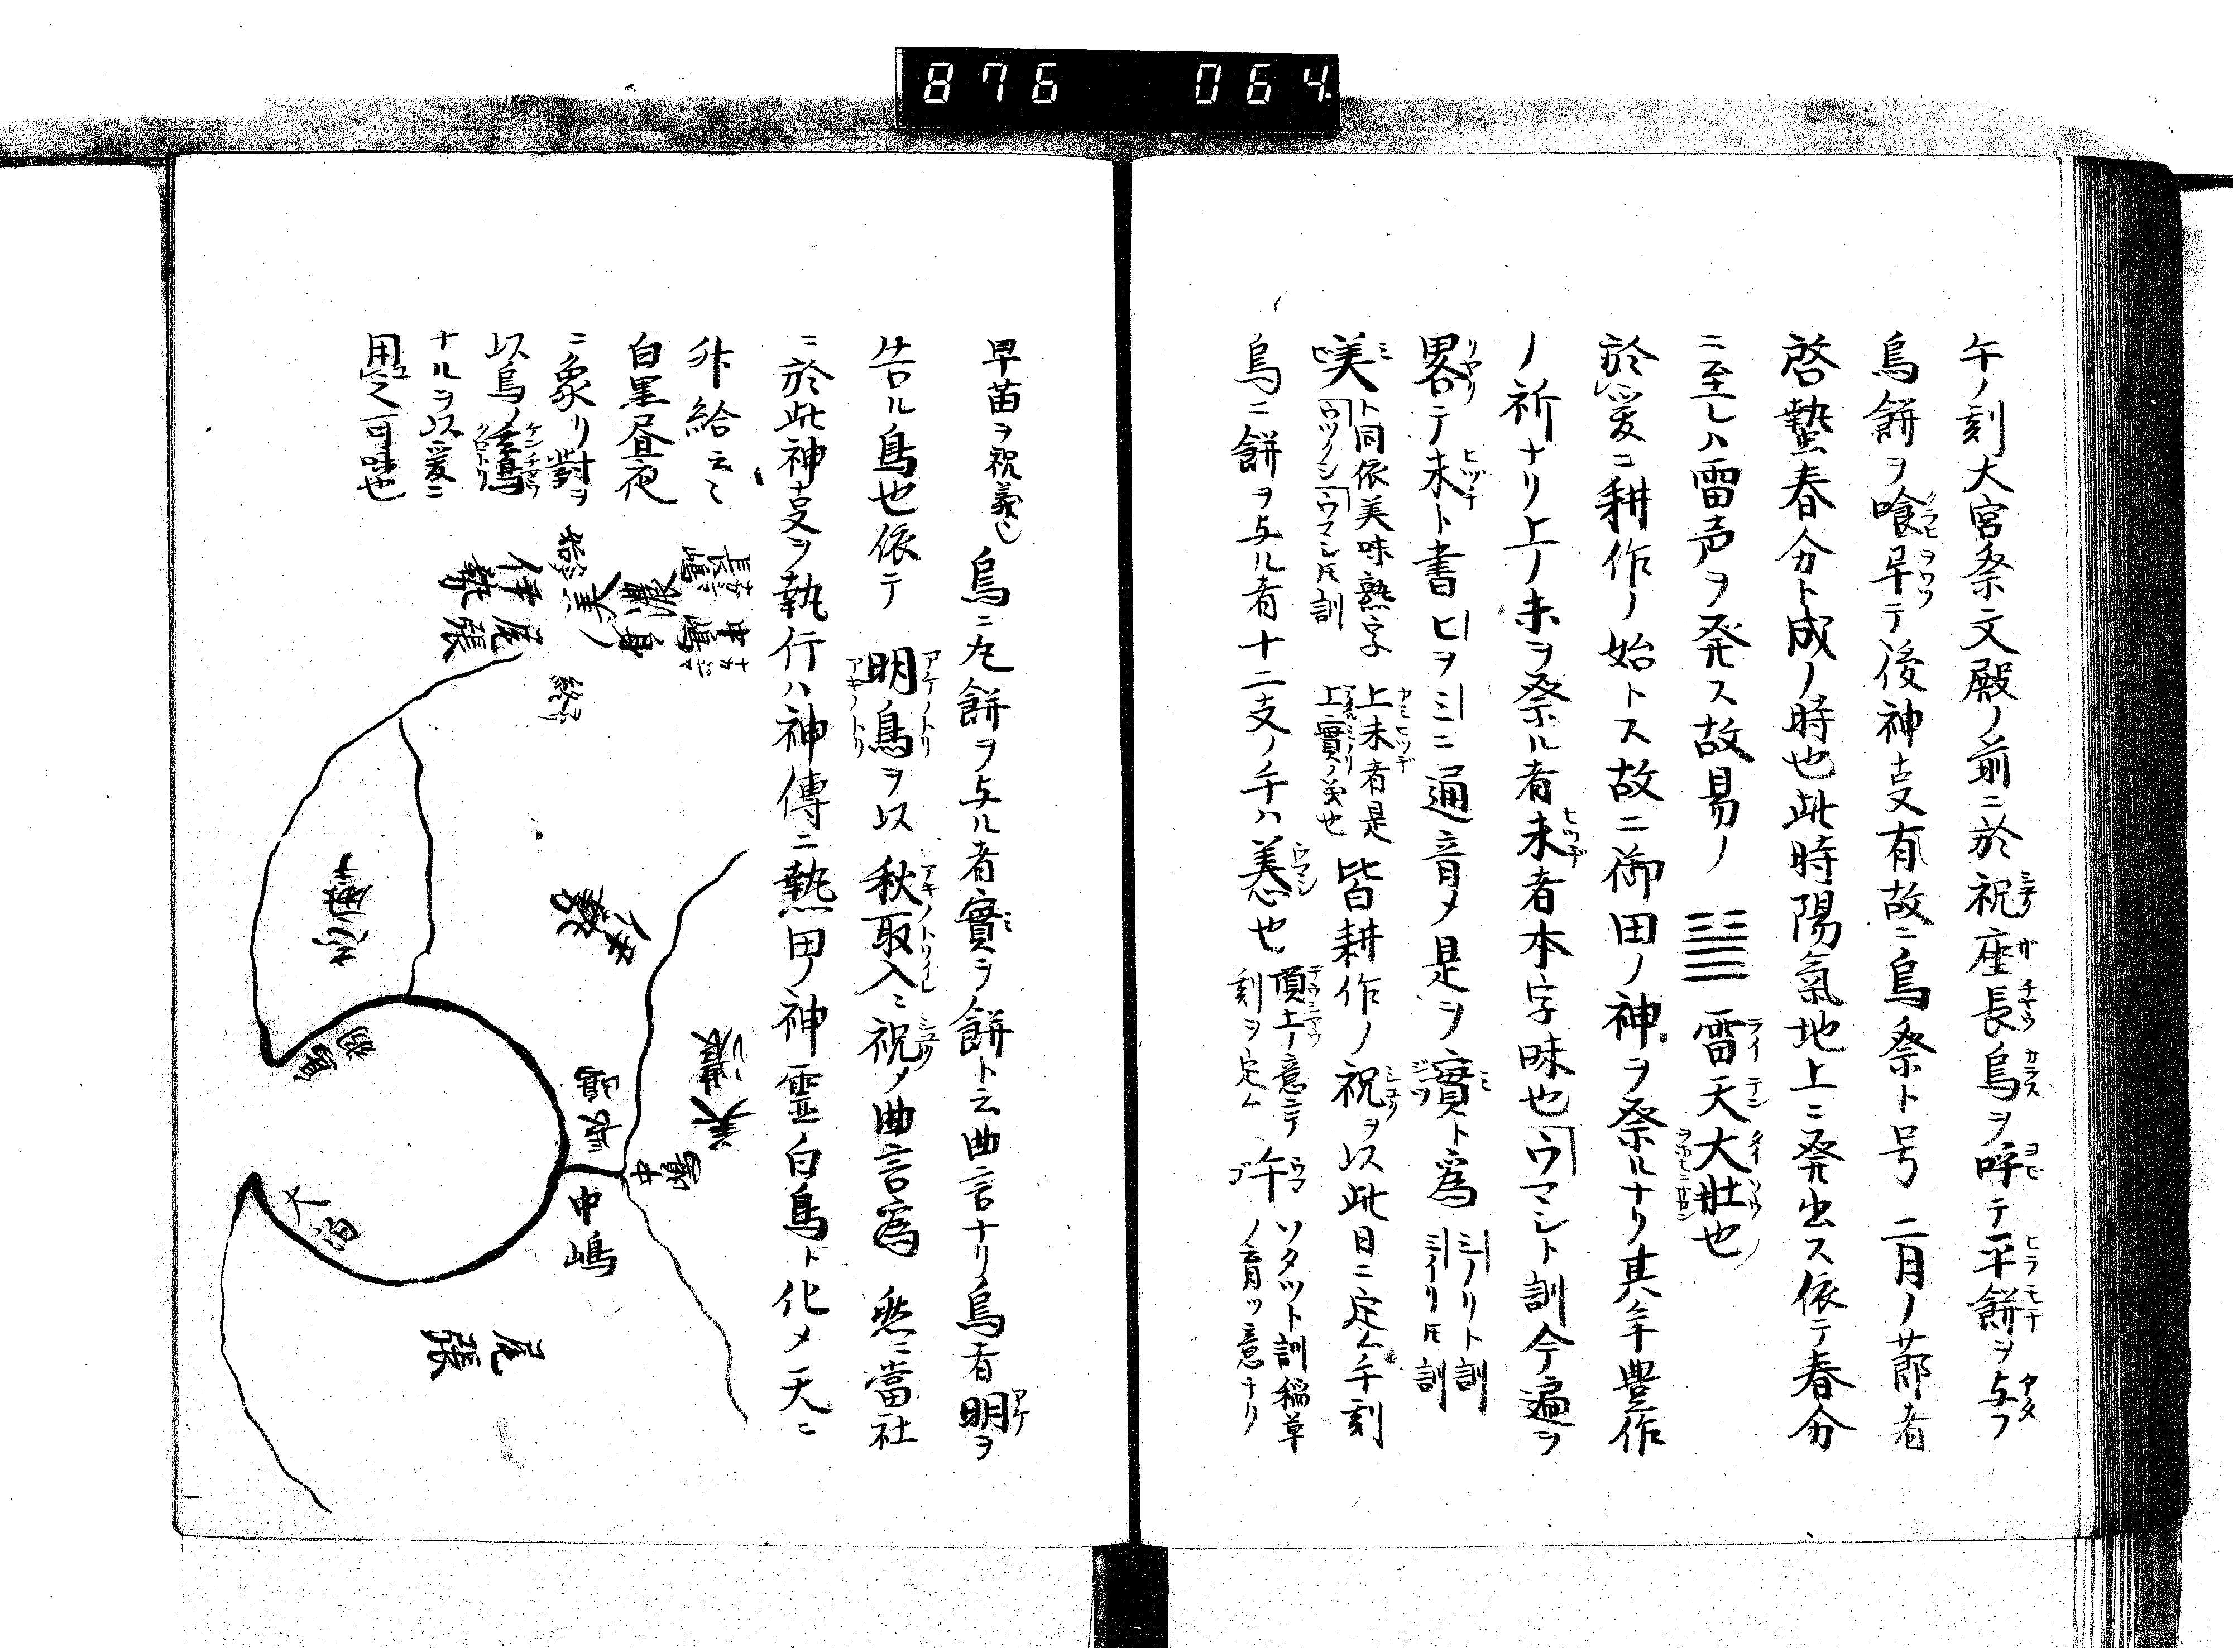 876 064
午ノ刻大宮祭文殿ノ前ニ於祝座長烏ヲ呼テ平餅ヲ与フ
烏餅ヲ喰早テ後神支有故ニ烏祭ト号 二月ノ節者
啓蟄春分ト成ノ時也此時陽氣地上ニ発出ス依テ春分
ニ至レハ雷声ヲ発ス故易ノ 雷天大壯也
於爰ニ耕作ノ始トス故ニ御田ノ神ヲ祭ルナリ其年豊作
ノ祈ナリ上ノ未ヲ祭ル者未者本字味也ウマシト訓今遍ヲ
畧テ未ト書ヒヲミニ通音メ是ヲ實ト爲 ミノリト訓 ミイリ𪜈訓
咲ト同依美味熟字 ウツノシウマシ𪜈訓 上未者是 上實ノ義也 皆耕作ノ祝ヲ以此日ニ定ム午刻
烏ニ餅ヲ与ル者十二支ノ午ハ美也 頂上ノ意ニテ 刻ヲ定ム 午 ソタツト訓稲草 ノ育ツ意ナリ
早苗ヲ祝義也 烏ニ大餅ヲ与ル者實ヲ餅ト云曲言ナリ烏者明ヲ
告ル鳥也依テ 明鳥ヲ以 秋取入ニ祝メ曲言爲 然ニ當社
ニ於此神支ヲ執行ハ神傳ニ熱田ノ神霊白鳥ト化メ天ニ
升給云々
白黒昼夜
ニ象リ對ヲ
以烏ノ
ナルヲ以爰ニ
用之可味也
伊勢
尾張
美濃
長嶋
中嶋
志摩
伊勢
美濃
長嶋
中嶋
尾張
大宮